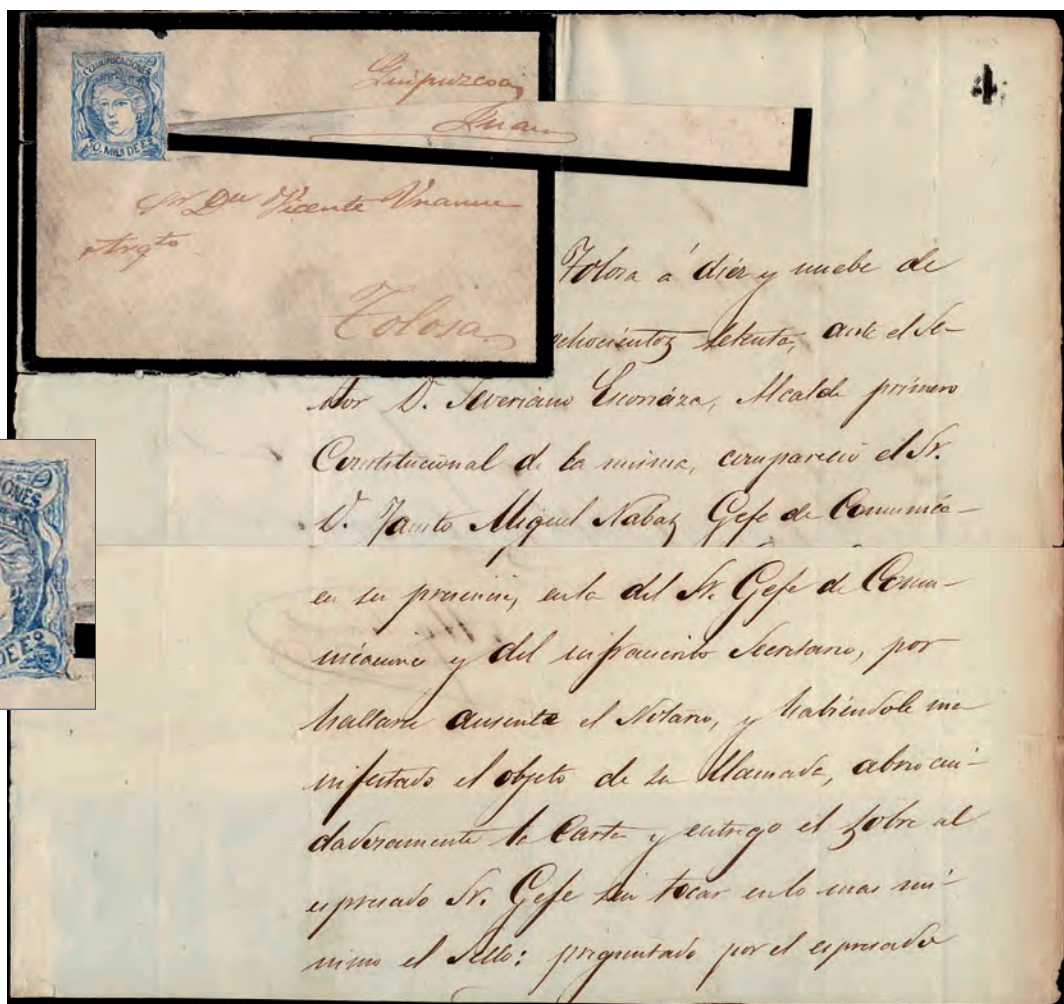 COMUNICACIONES
50 MILS DE Eo
Guipuzcoa
Sr Dn Vicente
Tolosa
4
Tolosa á diez y nuebe de
ochocientos setenta, ante el Se-
ñor D. Severiano Escoriáza, Alcalde primero
Constitucional de la misma, compareció el Sr.
D. Fausto Miguel Gefe de Comunica-
en su presencia, en la del Sr. Gefe de Comu-
nicaciones y del infrascrito Secretario, por
hallarse ausente el Notario, y habiéndole ma-
nifestado el objeto de su llamada, abrio cui-
dadosamente la Carta y entrego el sobre al
espresado Sr. Gefe sin tocar en lo mas mi-
nimo el sello: preguntado por el espresado
IONES
DE Eo